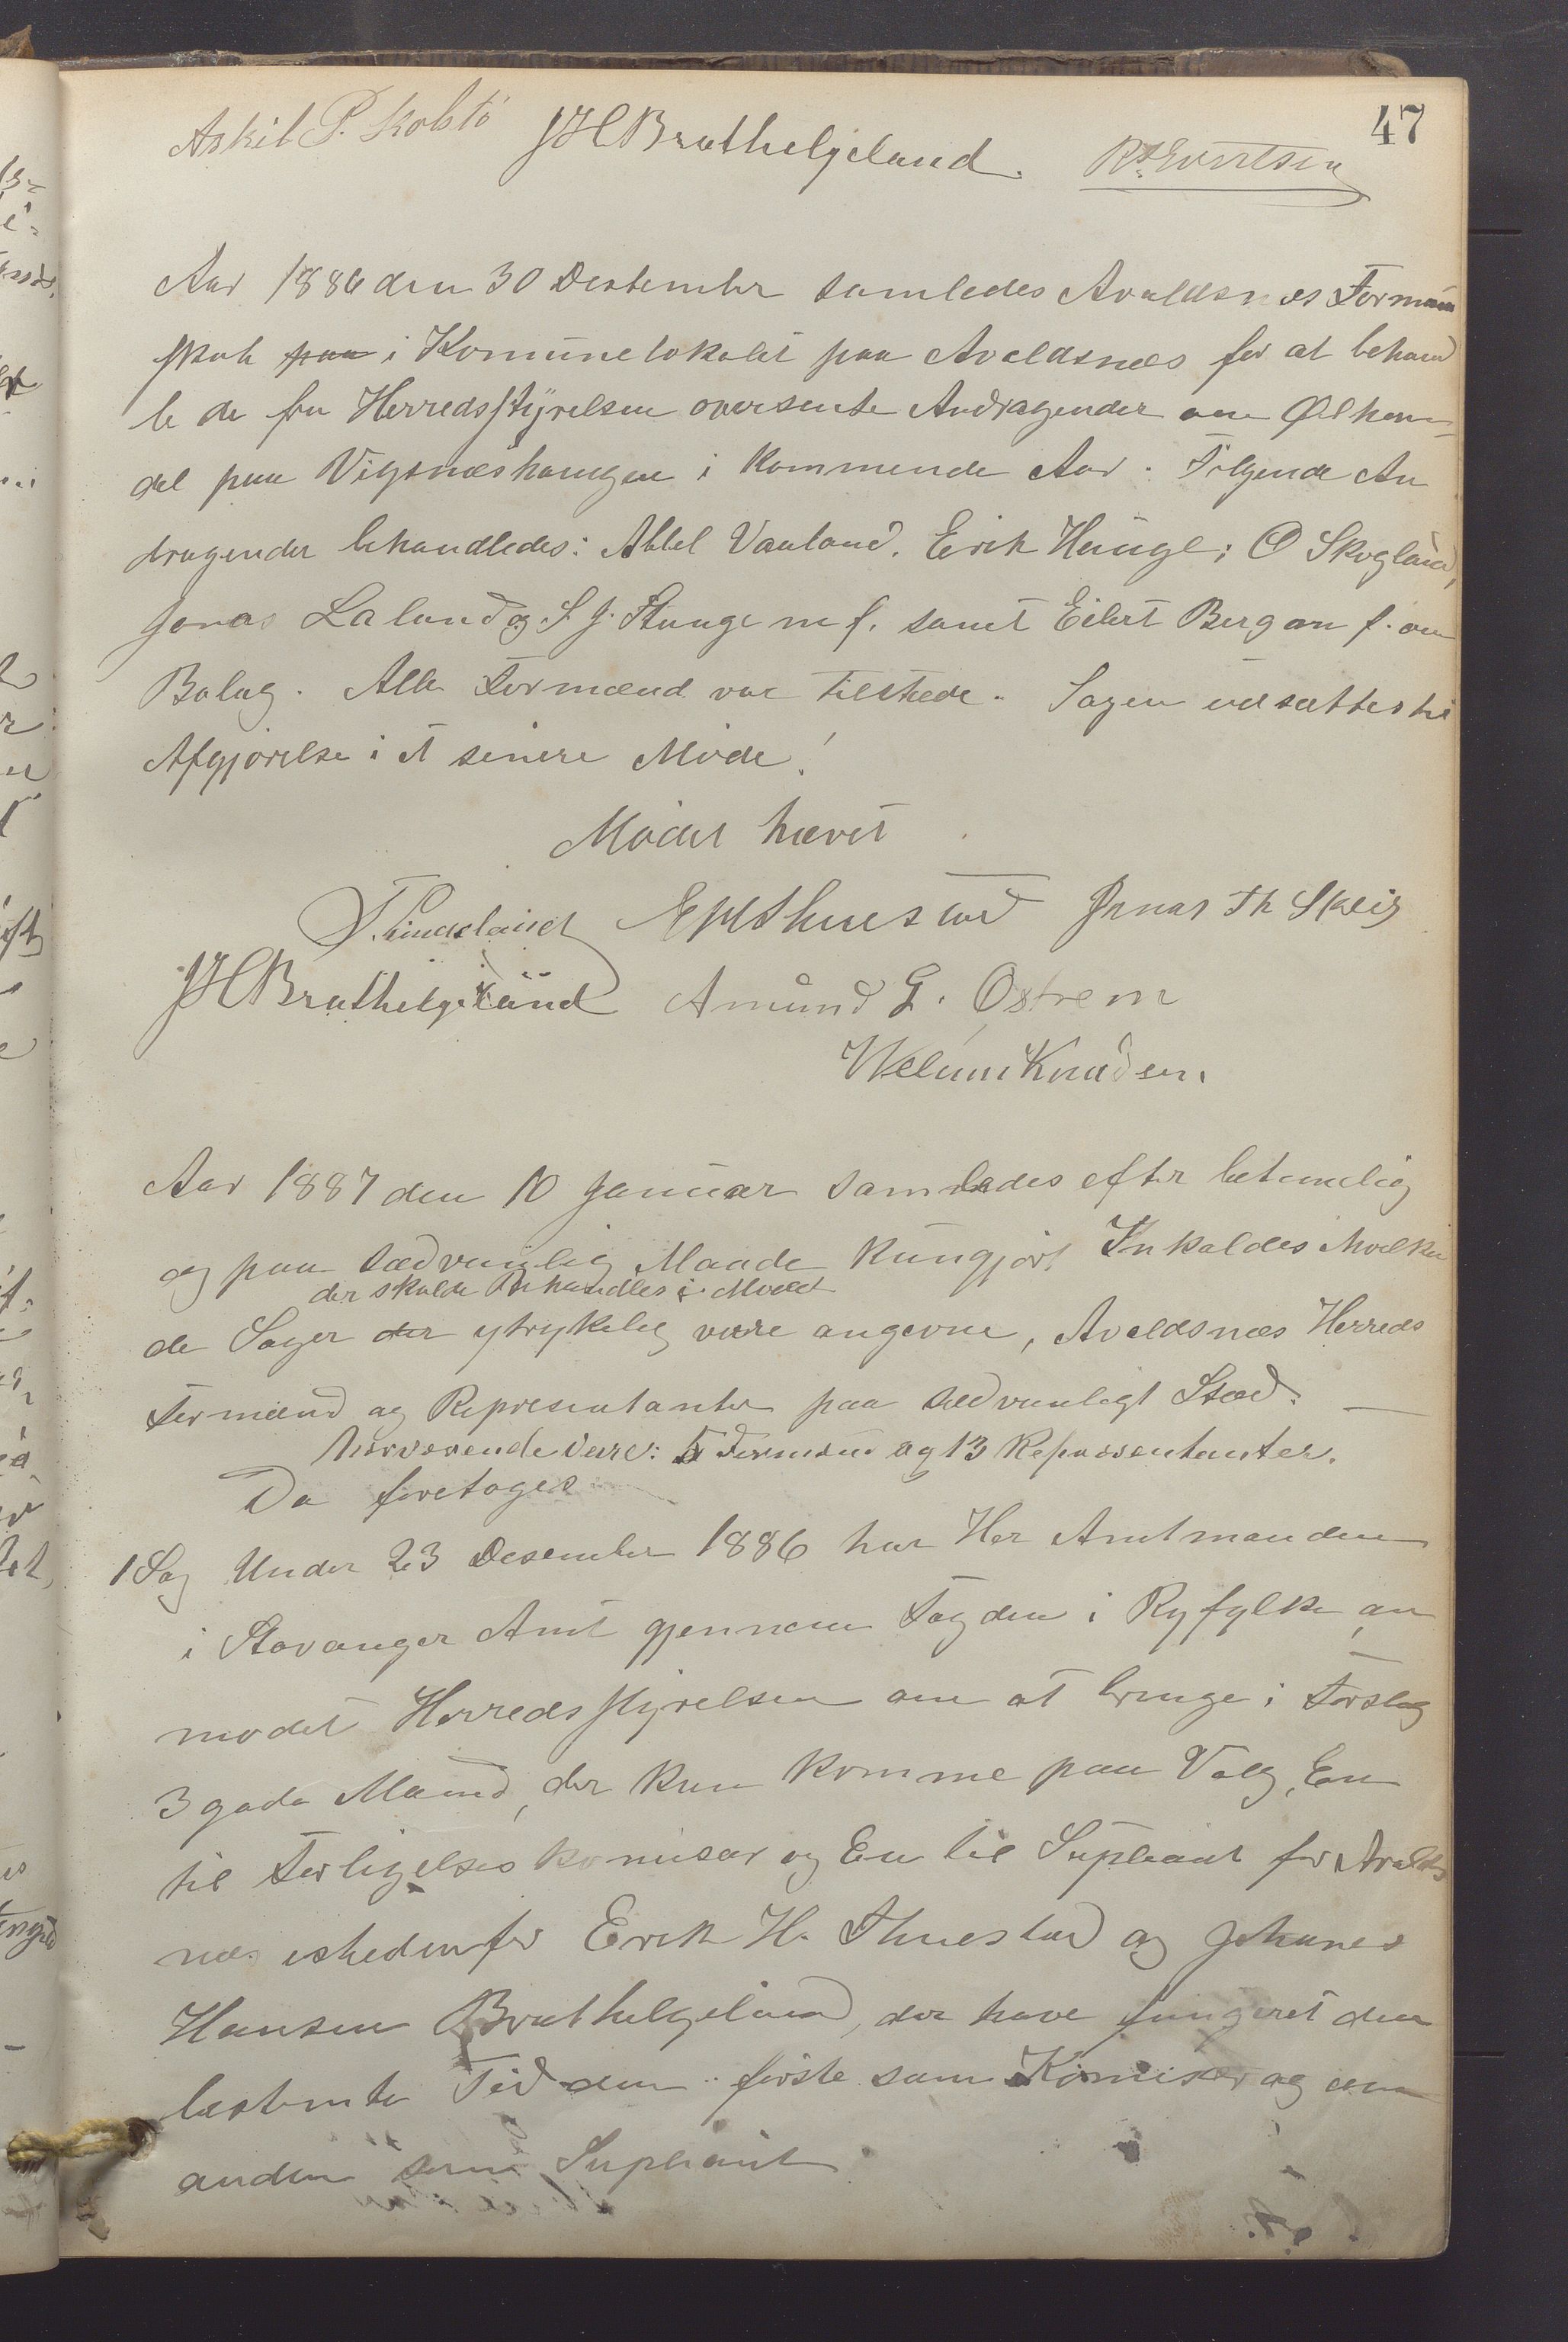 47
Askil P. Kolstö JHBrathelgeland. R. Evertsen
Aar 1886 den 30 Desember samledes Avaldsnæs Formand
skab paa i Komunelokalet paa Avaldsnæs for at behand
le de fra Herredsstyrelsen oversente Andragender om Ølhan-
del paa Vigsnæshaugen i kommende Aar. Følgende An
dragender behandledes: Abbel Vaaland, Erik Hauge; O Skogland,
Jonas Laland og S. J. Stange m f. samt Eilert Berg om f. om
Bolag. Alle Formænd var tilstede. Sagen udsættes til
Afgjørelse i et senere Møde!
Mødet hævet
T. Lindeland EHThuestad Jonas Th Skeie
JHBrathelgeland Amund G. Østrem
Welum Knudsen.
Aar 1887 den 10 Januar samledes efter betimelig
og paa sædvanlig Maade kungjørt Inkaldes hvilke
der skulde behandles i Mødet
de Sager der ytrykelig være angevne, Avaldsnæs Herreds
Formænd og Representanter paa sædvanligt Sted.
Nærværende være: 5 Formænd og 13 Repræsentanter.
Da foretoges
1 Sag Under 23 Desember 1886 har Her Amtmanden
i Stavanger Amt gjennem Fogden i Ryfylke, an
modet Herredsstyrelsen om at bringe i Forslag
3 gode Mænd, der kan komme paa Valg, En
til Forligelses komisær og En til Supleant for Avalds
næs istedenfor Erik H. Thuestad og Johanes
Hansen Brathelgeland, der have fungeret den
bestemte Tid den første som Komisær og den
anden som Supleant